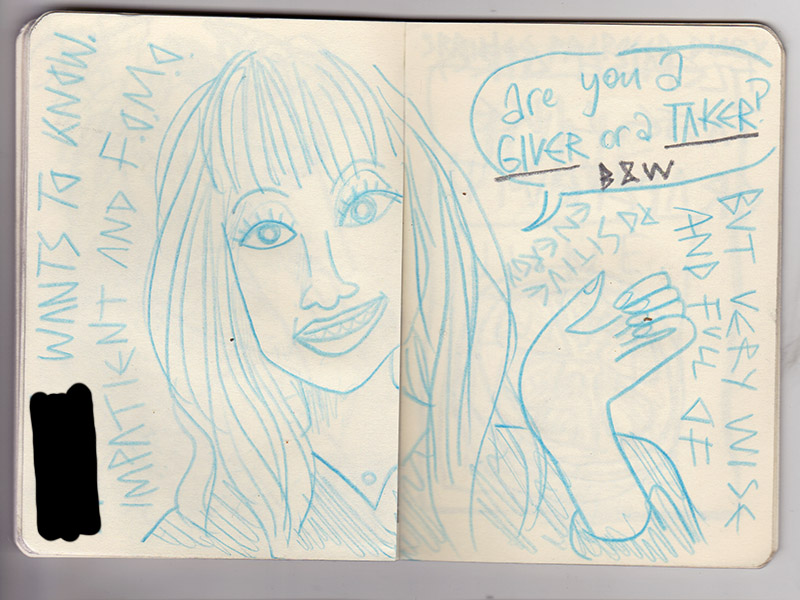 WANTS TO KNOW.
IMPATIENT AND F.O.M.O.
are you a
GIVER or a TAKER?
B&W
BUT VERY WISE
AND FULL OF
POSITIVE
ENERGY